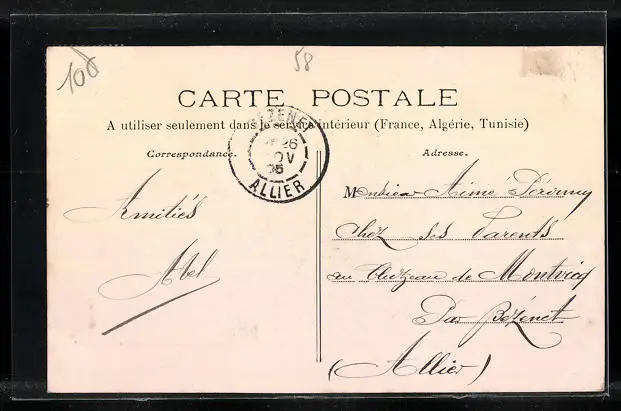 100
58
CARTE POSTALE
A utiliser seulement dans le service intérieur (France, Algérie, Tunisie)
BÉZENET
26
NOV
05
ALLIER
Correspondance.
Amitiés
Abel
Adresse.
Monsieur Aimé
chez ses Parents
au de Montvicq
Par Bézenet
(Allier)